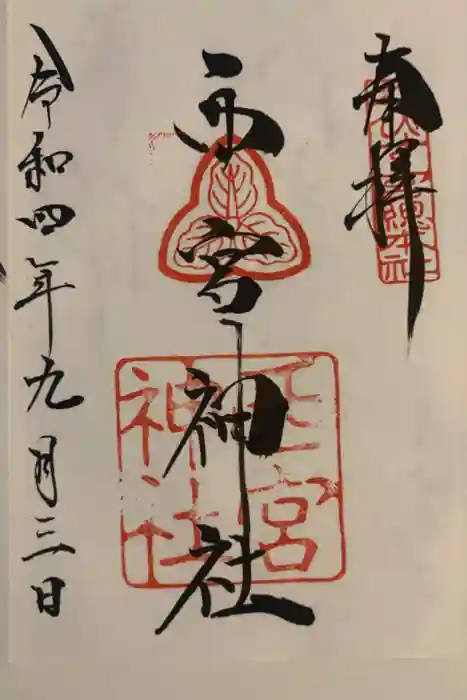 奉拝
宮神社
令和四年九月三日
宮
神社